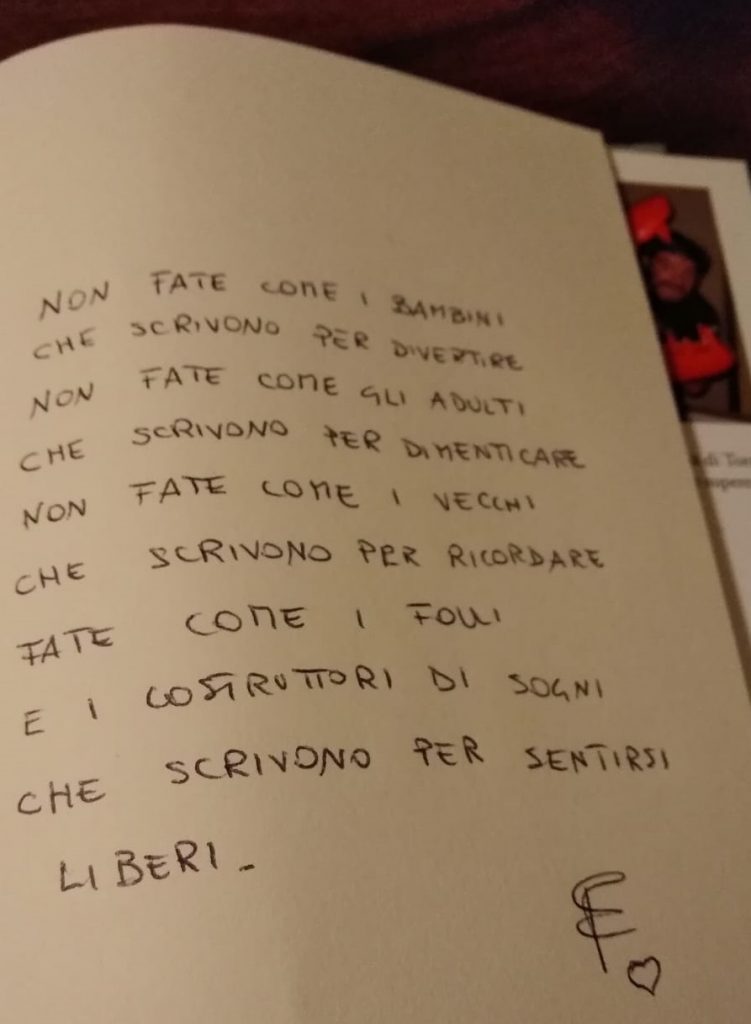 NON FATE COME I BAMBINI
CHE SCRIVONO PER DIVERTIRE
NON FATE COME GLI ADULTI
CHE SCRIVONO PER DIMENTICARE
NON FATE COME I VECCHI
CHE SCRIVONO PER RICORDARE
FATE COME I FOLLI
E I COSTRUTTORI DI SOGNI
CHE SCRIVONO PER SENTIRSI
LIBERI_
di